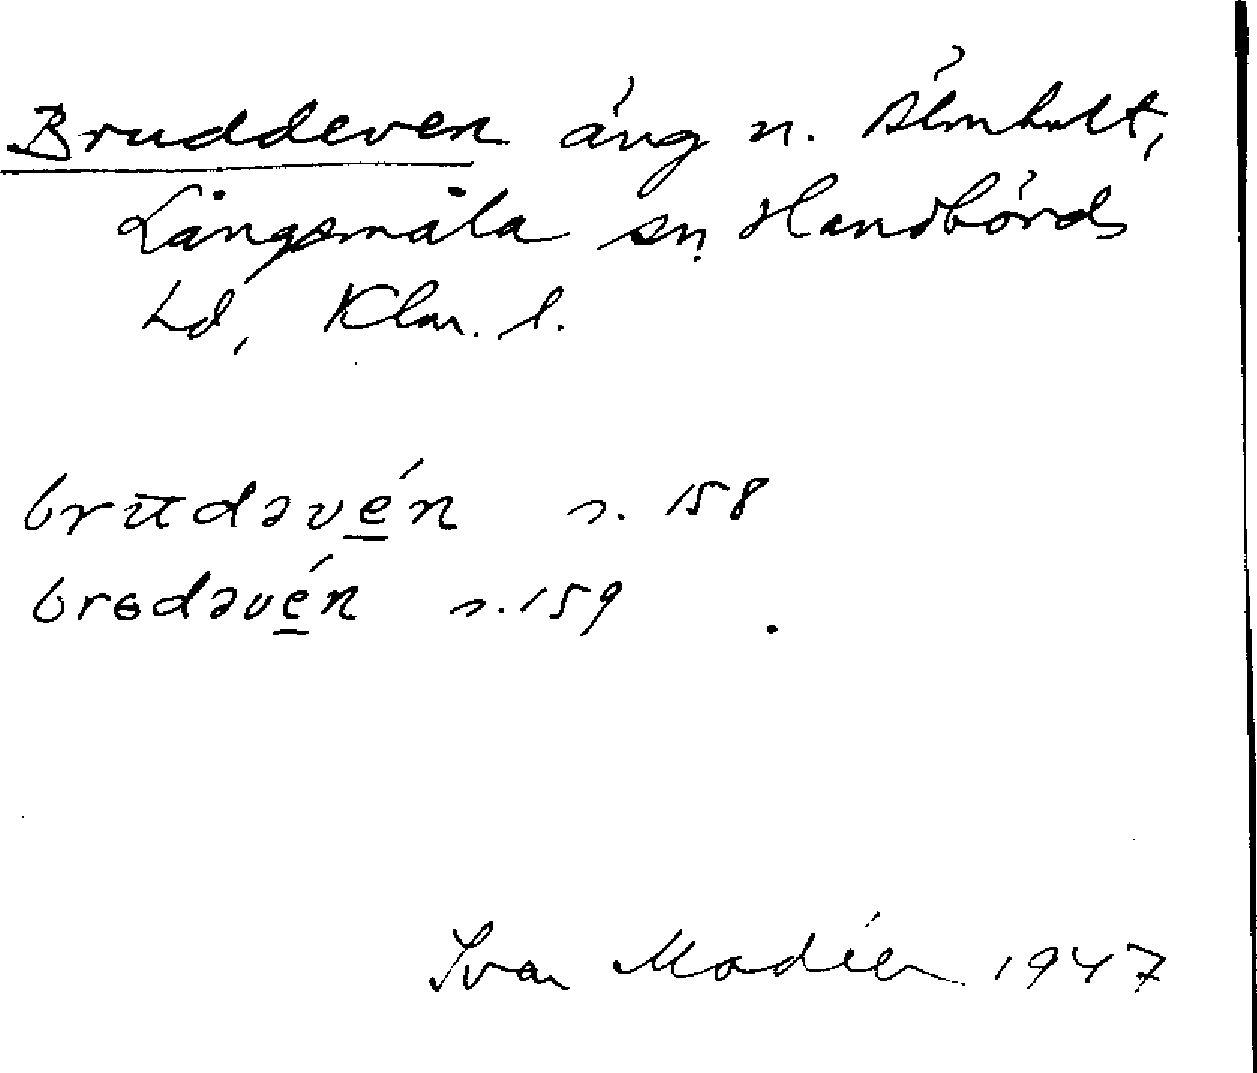 Bruddeven äng n. Älmhult,
Långsmåla sn, Handbörds
hd, Klm. l.
brudəvén s. 158
brɵdəvén s. 159
Ivar Modéer 1947